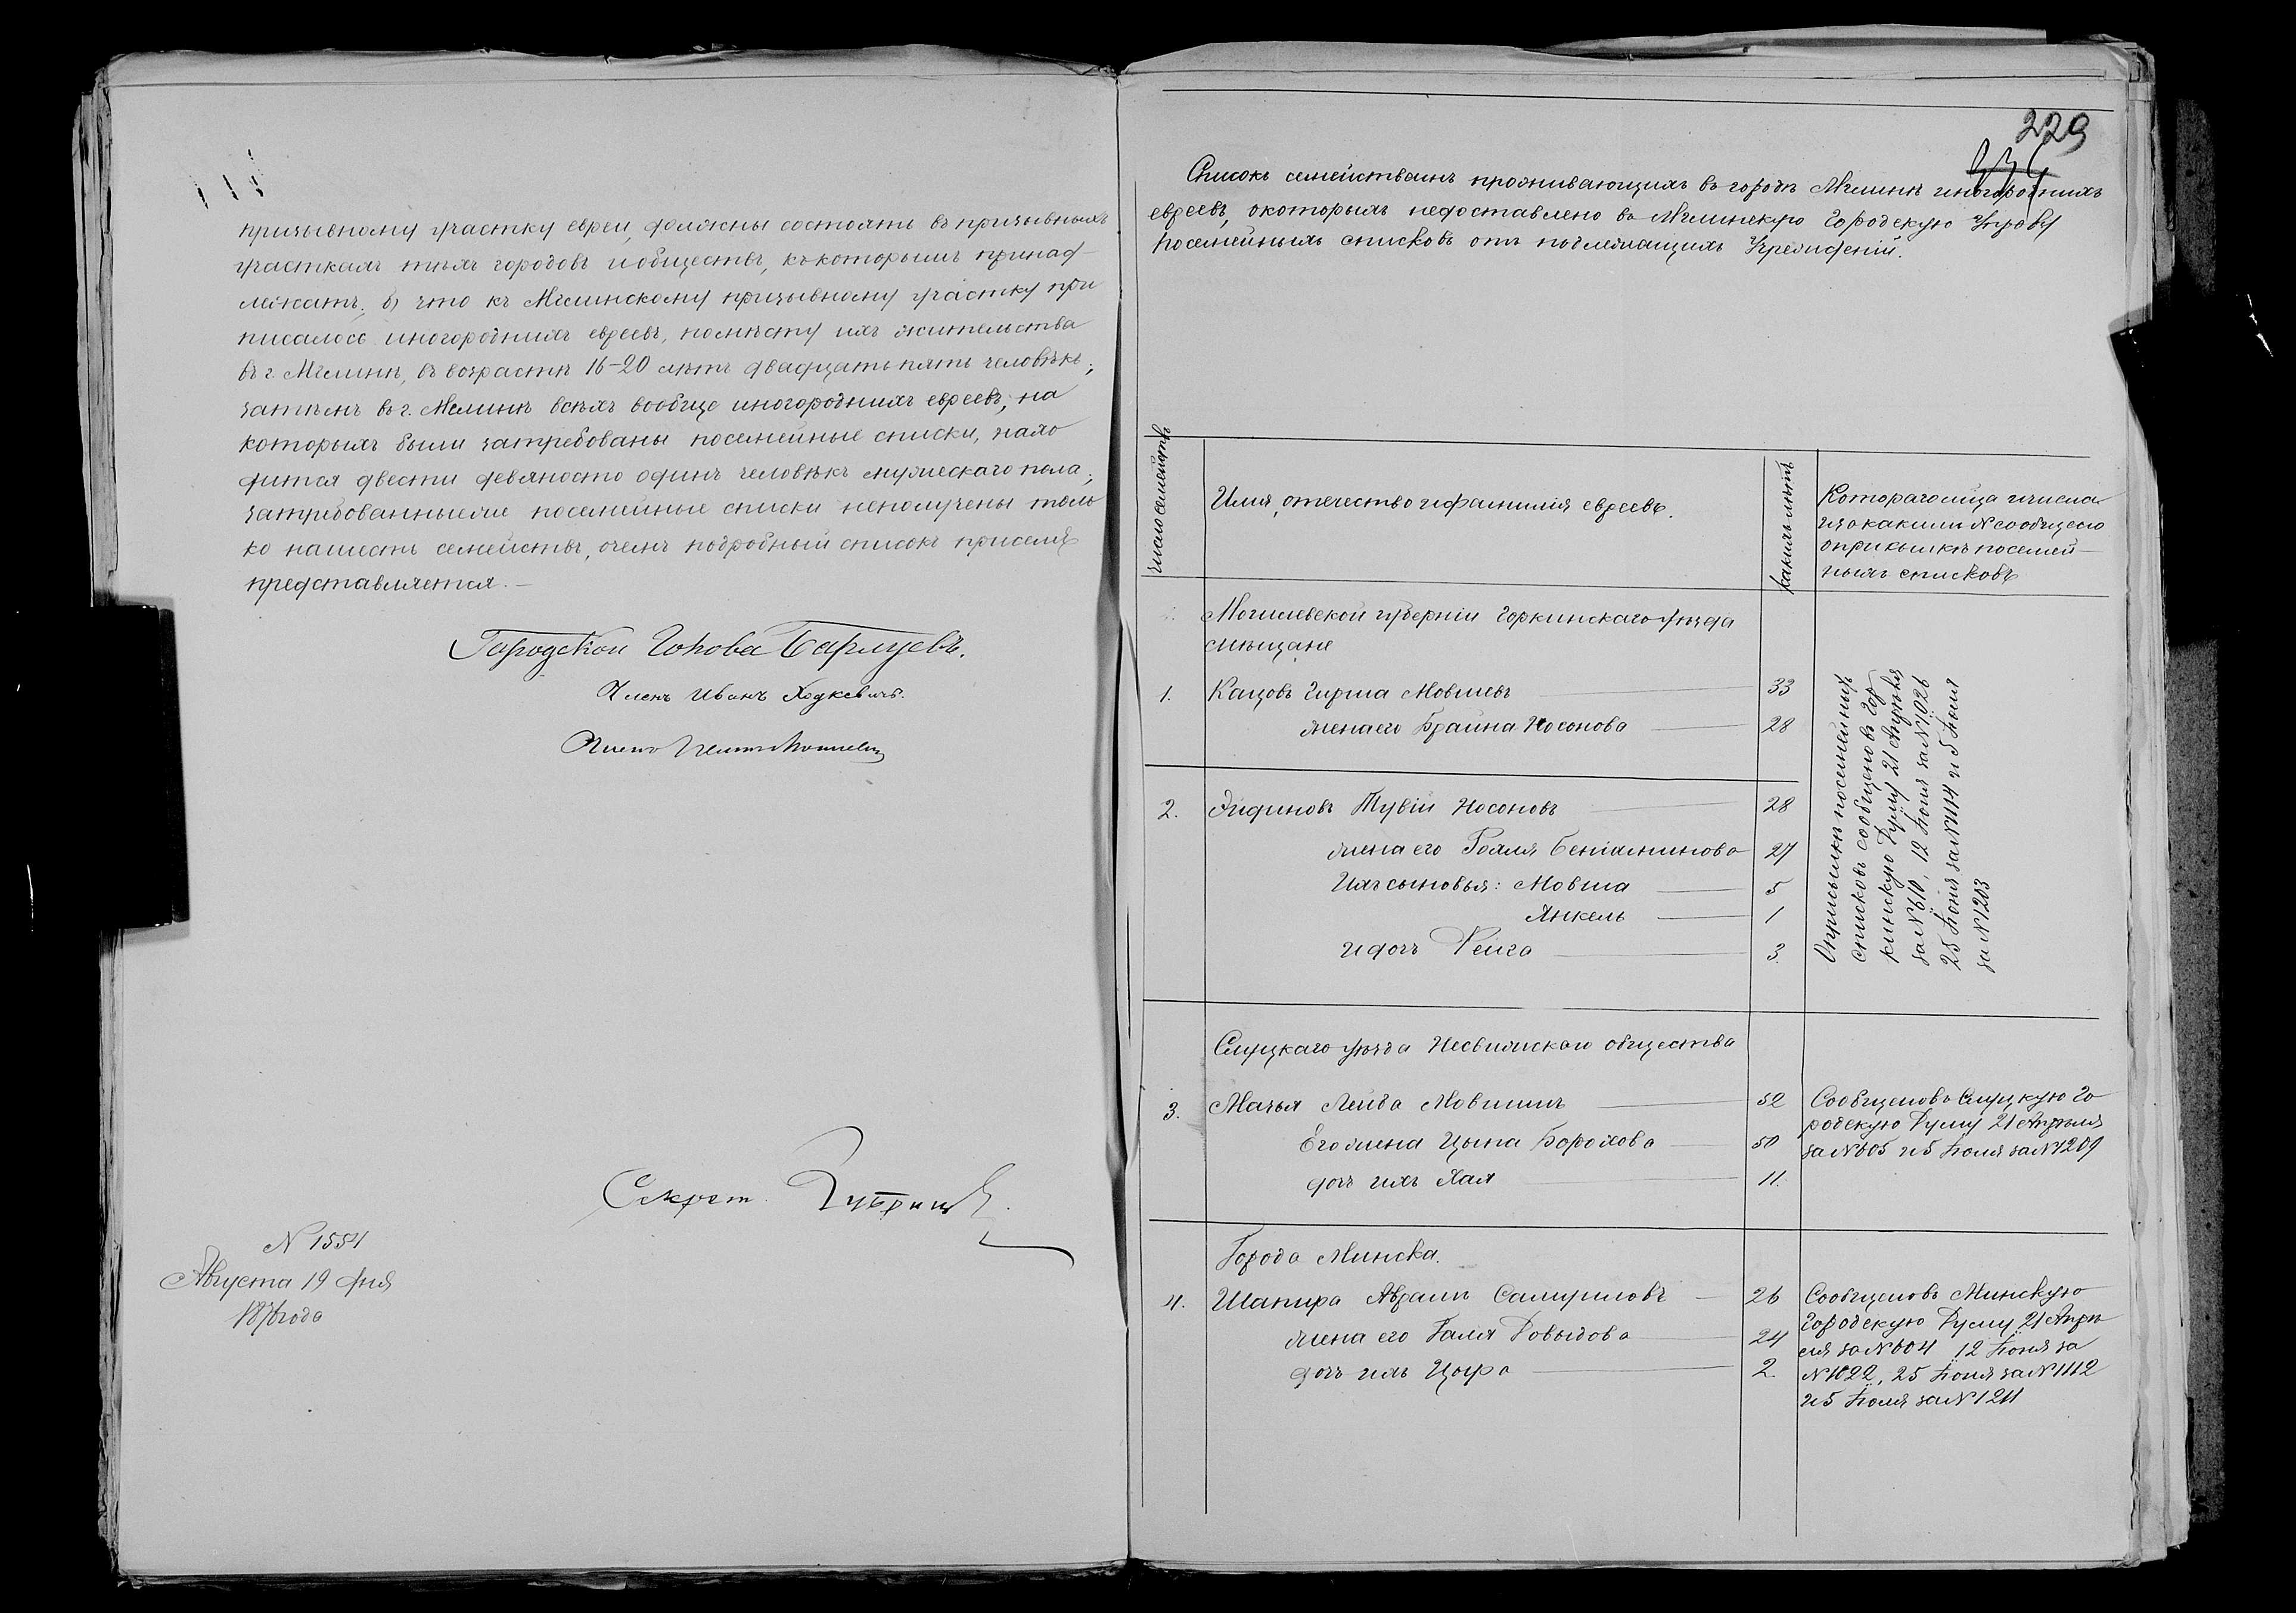 призывному участку евреи, должны состоять въ призывныхъ
участкахъ тѣхъ городовъ и обществъ, къ которымъ принад-
лежатъ; б) что къ Мглинскому призывному участку при
писалось иногороднихъ евреевъ, по мѣсту ихъ жительства
въ г. Мглинѣ, въ возрастѣ 16-20 лѣтъ двадцать пять человѣкъ;
затѣмъ въ г. Мглинѣ всѣхъ вообще иногороднихъ евреевъ, на
которыхъ были затребованы посемейные списки, нахо
дится двести девяносто одинъ человѣкъ мужескаго пола;
затребованные же посемейные списки неполучены толь
ко на шесть семействъ, о чемъ подробный списокъ при семъ
представляется.—
Городской Голова
Членъ Иванъ Ходкевичъ.
Членъ
Секрет.
N 1554
Августа 19 дня
1876 года
229
Списокъ семействамъ проживающихъ въ городѣ Мглинѣ иногороднихъ
евреевъ, о которыхъ недоставлено въ Мглинскую Городскую Управу
посемейныхъ списковъ отъ подлежащихъ Учрежденій.
число семействъ
Имя, отечество и фамилія евреевъ.
какихъ лѣтъ
Котораго мѣсяца и числа
и за какимъ N сообщено
о присылкѣ посемей—
ныхъ списковъ
Могилевской губерніи Горкинскаго уѣзда
мѣщане
1. Кацовъ Гирша Мовшевъ 33
жена его Брайна Носонова 28
2. Эйдиновъ Тувій Носоновъ 28
жена его Бениаминова 27
Ихъ сыновья: Мовша 5
Янкель 1
и дочь Рейза 3.
О присылкѣ посемейныхъ
списковъ сообщено въ Гор
кинскую Думу 21 Апрѣля
за N 610, 12 Іюня за N 1026
25 Іюня за N 1114 и 5 Іюля
за N 1203
Слуцкаго уѣзда Несвижскаго общества
3. Лейба Мовшинъ 52
Его жена Цына Борохова 50
дочь ихъ Хая 11.
Сообщено въ Слуцкую Го
родскую Думу 21 Апрѣля
за N 605 и 5 Іюля за N 1209
Города Минска.
4. Шапира Абрамъ 26
жена его Галя Довыдова 24
дочь ихъ 2.
Сообщено въ Минскую
Городскую Думу 21 Апрѣ
ля за N 604 12 Іюня за
N 1022, 25 Іюня за N 1112
и 5 Іюля за N 1211